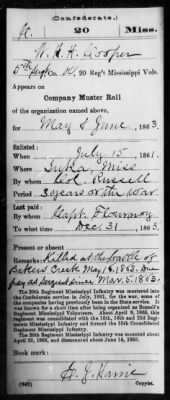 (Confederate.)
Jc. 20 Miss.
W. H. H. Cooper
Co. K, 20 Reg't Mississippi Vols.
Appears on
Company Muster Roll
of the organization named above,
for May & June, 1863.
Enlisted:
When July 15, 1861.
Where Iuka, Miss
By whom Col. Russell
Period 3 years or the war
Last paid:
By whom Capt. Flournoy
To what time Dec. 31, 1863.
Present or absent
Remarks: Killed at the battle of
Bakers Creek May 16, 1863. Due
pay as
The 20th Regiment Mississippi Infantry was mustered into
the Confederate service in July, 1861, for the war, some of
the companies having previously been in the State service. It
was known for a short time after being organized as Russell's
Regiment Mississippi Volunteers. About April 9, 1865, this
regiment was consolidated with the
Regiments Mississippi Infantry and formed the 15th Consolidated
Regiment Mississippi Infantry.
Book mark:
(642) Copyist.